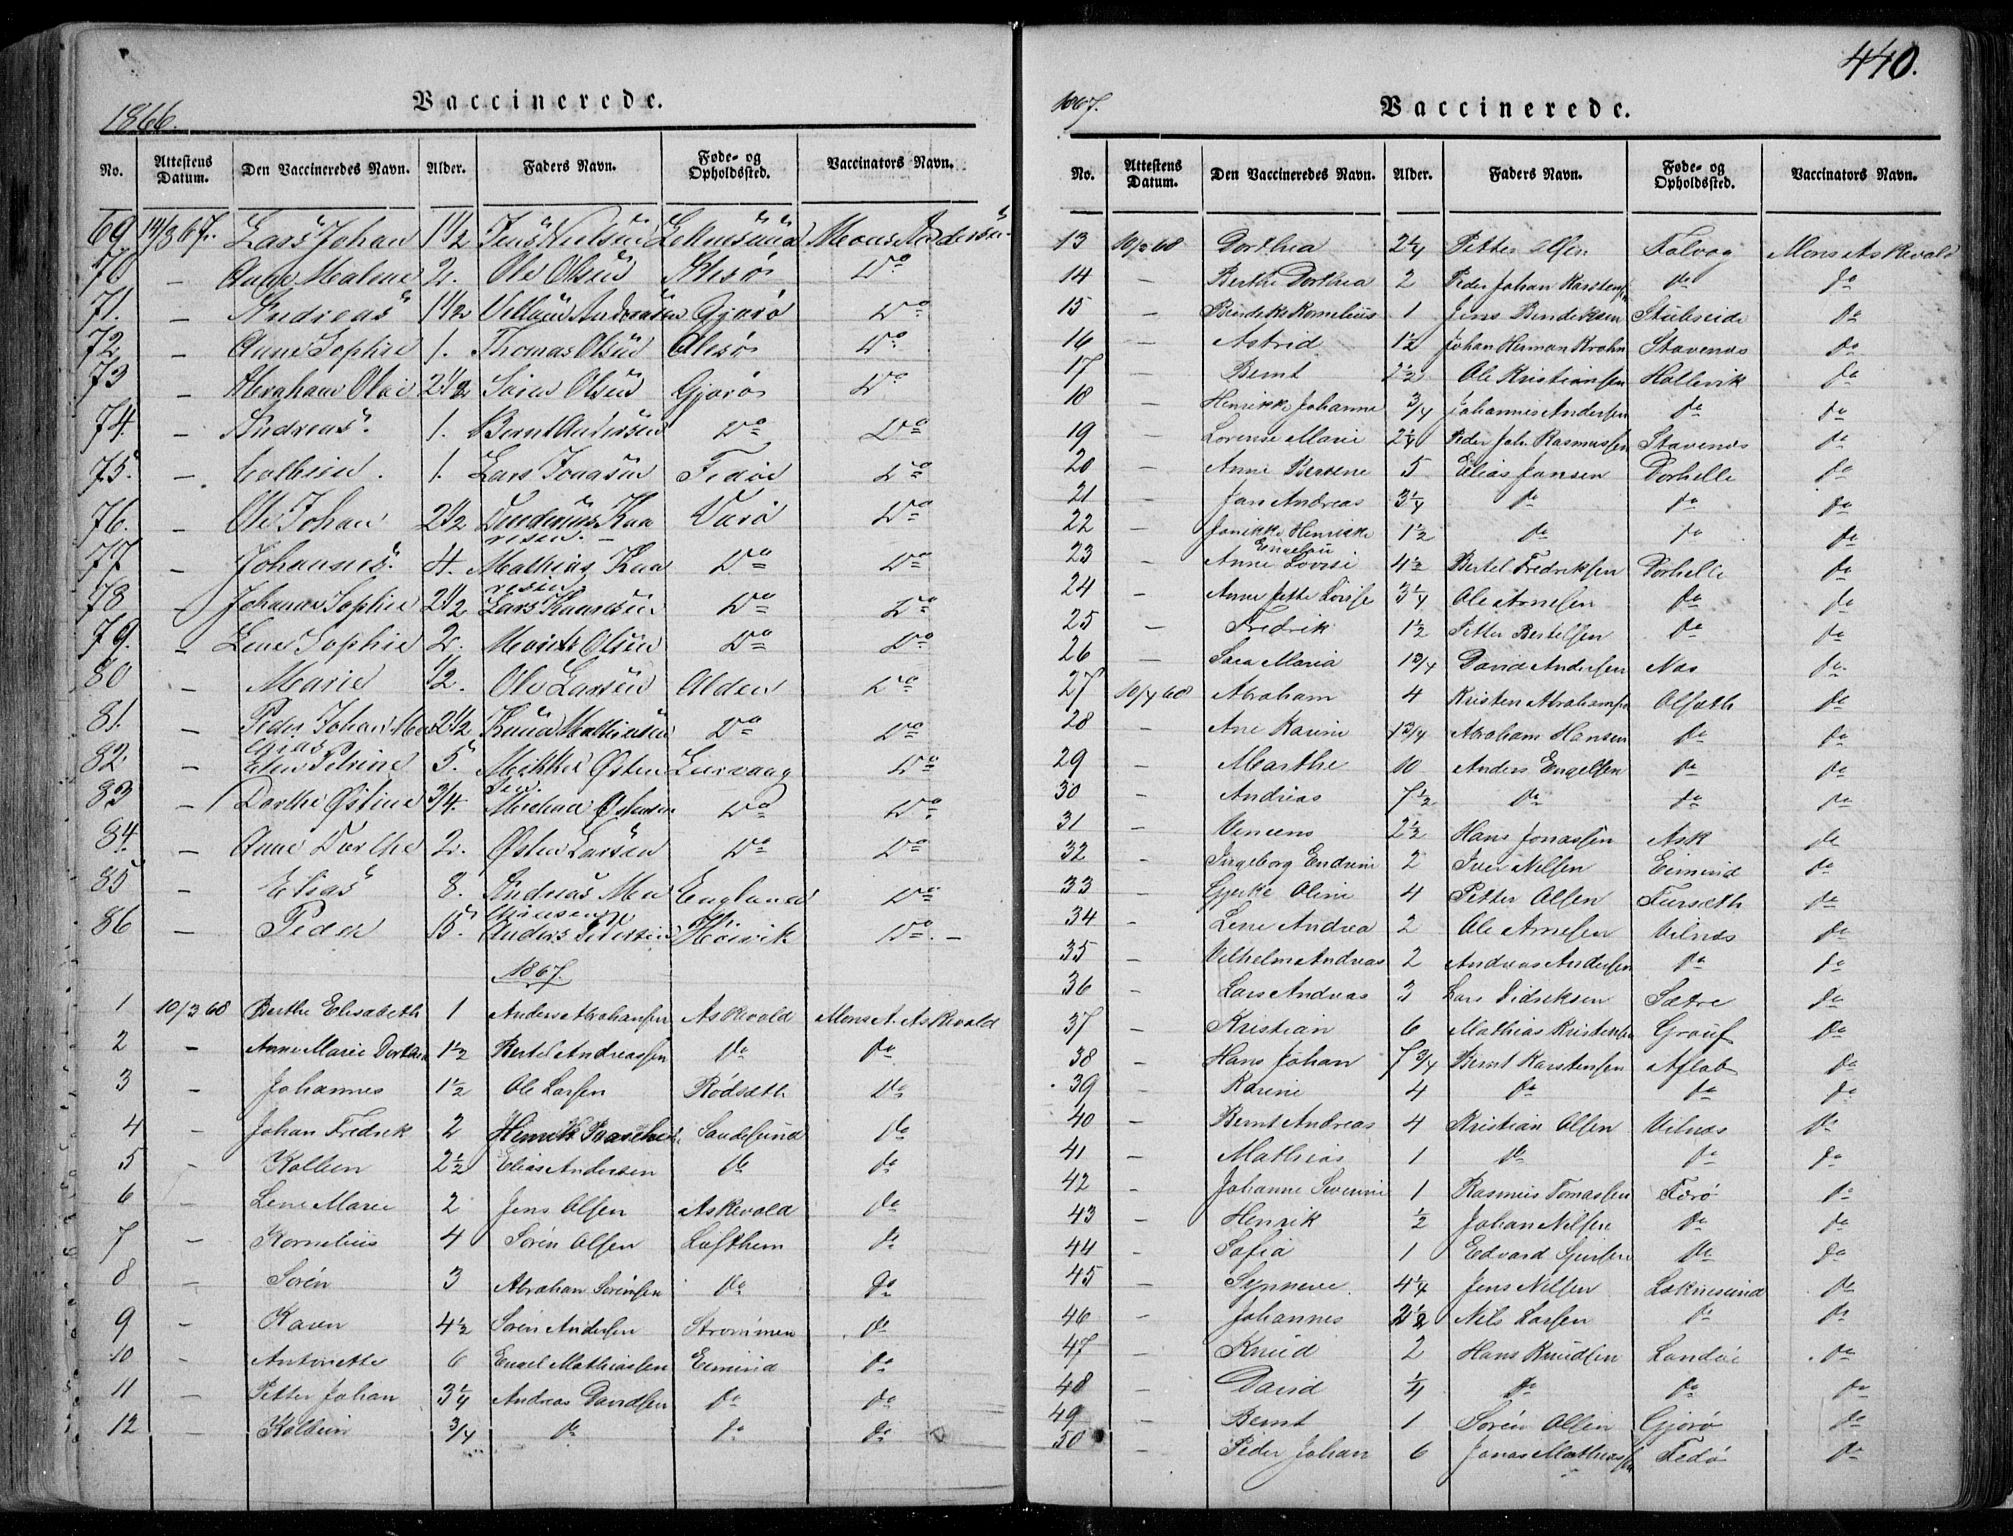 Vaccinerede.
1866.
No. Attestens Datum. Den Vaccineredes Navn. Alder. Faders Navn. Føde- og Opholdssted. Vaccinators Navn.
69 14/3 67. Lars Johan 1 1/2 Jens Nielsen Leknesund Mons Andersen
70 — Anne Malene 2. Ole Olsen Alesø Do
71. — Andreas 1 1/2 Andreasen Gjørø Do
72. — Anne Sophie 1. Thomas Olsen Alesø Do
73 Abraham Olai 2 1/2 Søren Olsen Gjørø Do
74. — Andreas. 1. Bernt Andersen Do Do
75. — Kolbein. 1. Lars Jonasen Fedøe Do
76. — Ole Johan 2 1/2 Knaresen. — Værø Do
77 — Johannes. 4. Mathias Knaresen Do Do
78 — Johanne Sophie 2 1/2 Lars Hansen Do Do
79. — Lene Sophie 2. Morits Olsen Do Do
80 — Marie 1/2. Ole Larsen Alden Do
81. — Peder Johan 2 1/2 Knud Mathiesen Do Do
82. — Elen Petrine 5. Mikkel Østensen. Leirvaag Do
83 — Dorthe Østine 3/4. Michael Østensen Do Do
84. — Anne Dorthe 2. Østen Larsen Do Do
85 — Elias 8. Andreas England Do
86 — Peder 15. Anders Høivik Do. —
1867.
1 10/3 68 Berthe Elisabeth 1 Anders Abrahamsen Askevold Mons A. Askevold
2 - Anne Marie Dorthea 1 1/2 Bertel Andreassen do do
3 - Johannes 1 1/2 Ole Larsen Rødsæth do
4 - Johan Fredrik 2 Henrik Sandesund do
5 - Kolbein 2 1/2 Elias Andersen do do
6 - Lene Marie 2 Jens Olsen Askevold do
7 - Kornelius 4 Sørén Olsen Lofthem do
8 - Sørén 3 Abraham Sørénsen do do
9 - Karen 4 1/2 Sørén Andersen Strømmen do
10 - Antonette 6 Engel Mathiassen Eimind do
11 — Petter Johan 3 1/4 Andreas Davidsen do do
12 — Kolbein 3/4 do do do
440.
1867.
Vaccinerede.
No. Attestens Datum. Den Vaccineredes Navn. Alder. Faders Navn. Føde- og Opholdssted. Vaccinators Navn.
13 10/3 68 Dorthea 2 1/4 Petter Olsen Folvog Mons Askevold
14 — Berthe Dorthea 2 Peder Johan Karstensen do do
15 — Bendikke Kornelius 1 Jens Bendiksen Stubseide do
16 — Astrid 1 1/2 Johan Herman Krohn Stavenæs do
17 — Bernt 2 1/2 Ole Kristiansen Hollevik do
18 — Henrikke Johanne 3/4 Johannes Andersen do do
19 — Lorense Marie 2 1/4 Peder Joh. Rasmussen Stavenæs do
20 — Anne Berthene 5 Elias Jansen Dorhelle do
21 — Jan Andreas 3 1/4 do do do
22 — Jonikke Henrikke 1 1/2 do do do
23 Anne Engelou Lovise 4 1/2 Bertel Fredriksen Dorhelle do
24 — Anne Jette Lovise 3 1/4 Ole Arnesen do do
25 — Fredrik 1 1/2 Petter Bertelsen do do
26 — Sara Maria 1 3/4 David Andersen Næs do
27 10/4 68 Abraham 4 Kristen Abrahamsen Olsæth do
28 — Ane Karine 1 3/4 Abraham Hansen do do
29 — Marthe 10 Anders Engelsen do do
30 — Andreas 7 1/2 do do do
31 — Vincens 2 1/2 Hans Jonassen Ask do
32 — Ingeborg Endrine 2 Iver Nilsen Eimind do
33 — Gjerke Oline 4 Petter Olsen Fursæth do
34 — Lene Andrea 2 Ole Arnesen Vilnæs do
35 — Vilhelm Andreas 2 Andreas Andersen do do
36 — Lars Andreas 3 Lars Didriksen Sætre do
37 — Kristian 6 Mathias Kristensen Grouf do
38 — Hans Johan 7 3/4 Bernt Karstensen Aflot do
39 — Karine 4 do do do
40 — Bernt Andreas 4 Kristian Olsen Vilnæs do
41 — Mathias 1 do do do
42 — Johanne Severine 1 Rasmus Tomassen Færø do
43 — Henrik 1/2 Johan Nilsen do do
44 — Sofia 1 Edvard do do
45 — Synneve 4 1/4 Jens Nilsen Leknesund do
46 — Johannes 2 1/2 Nils Larsen do do
47 — Knud 2 Hans Knudsen Landøe do
48 — David 1/4 do do do
49 — Bernt 1 Sørén Olsen Gjørø do
50 — Peder Johan 6 Jonas Mathiassen Fedø do